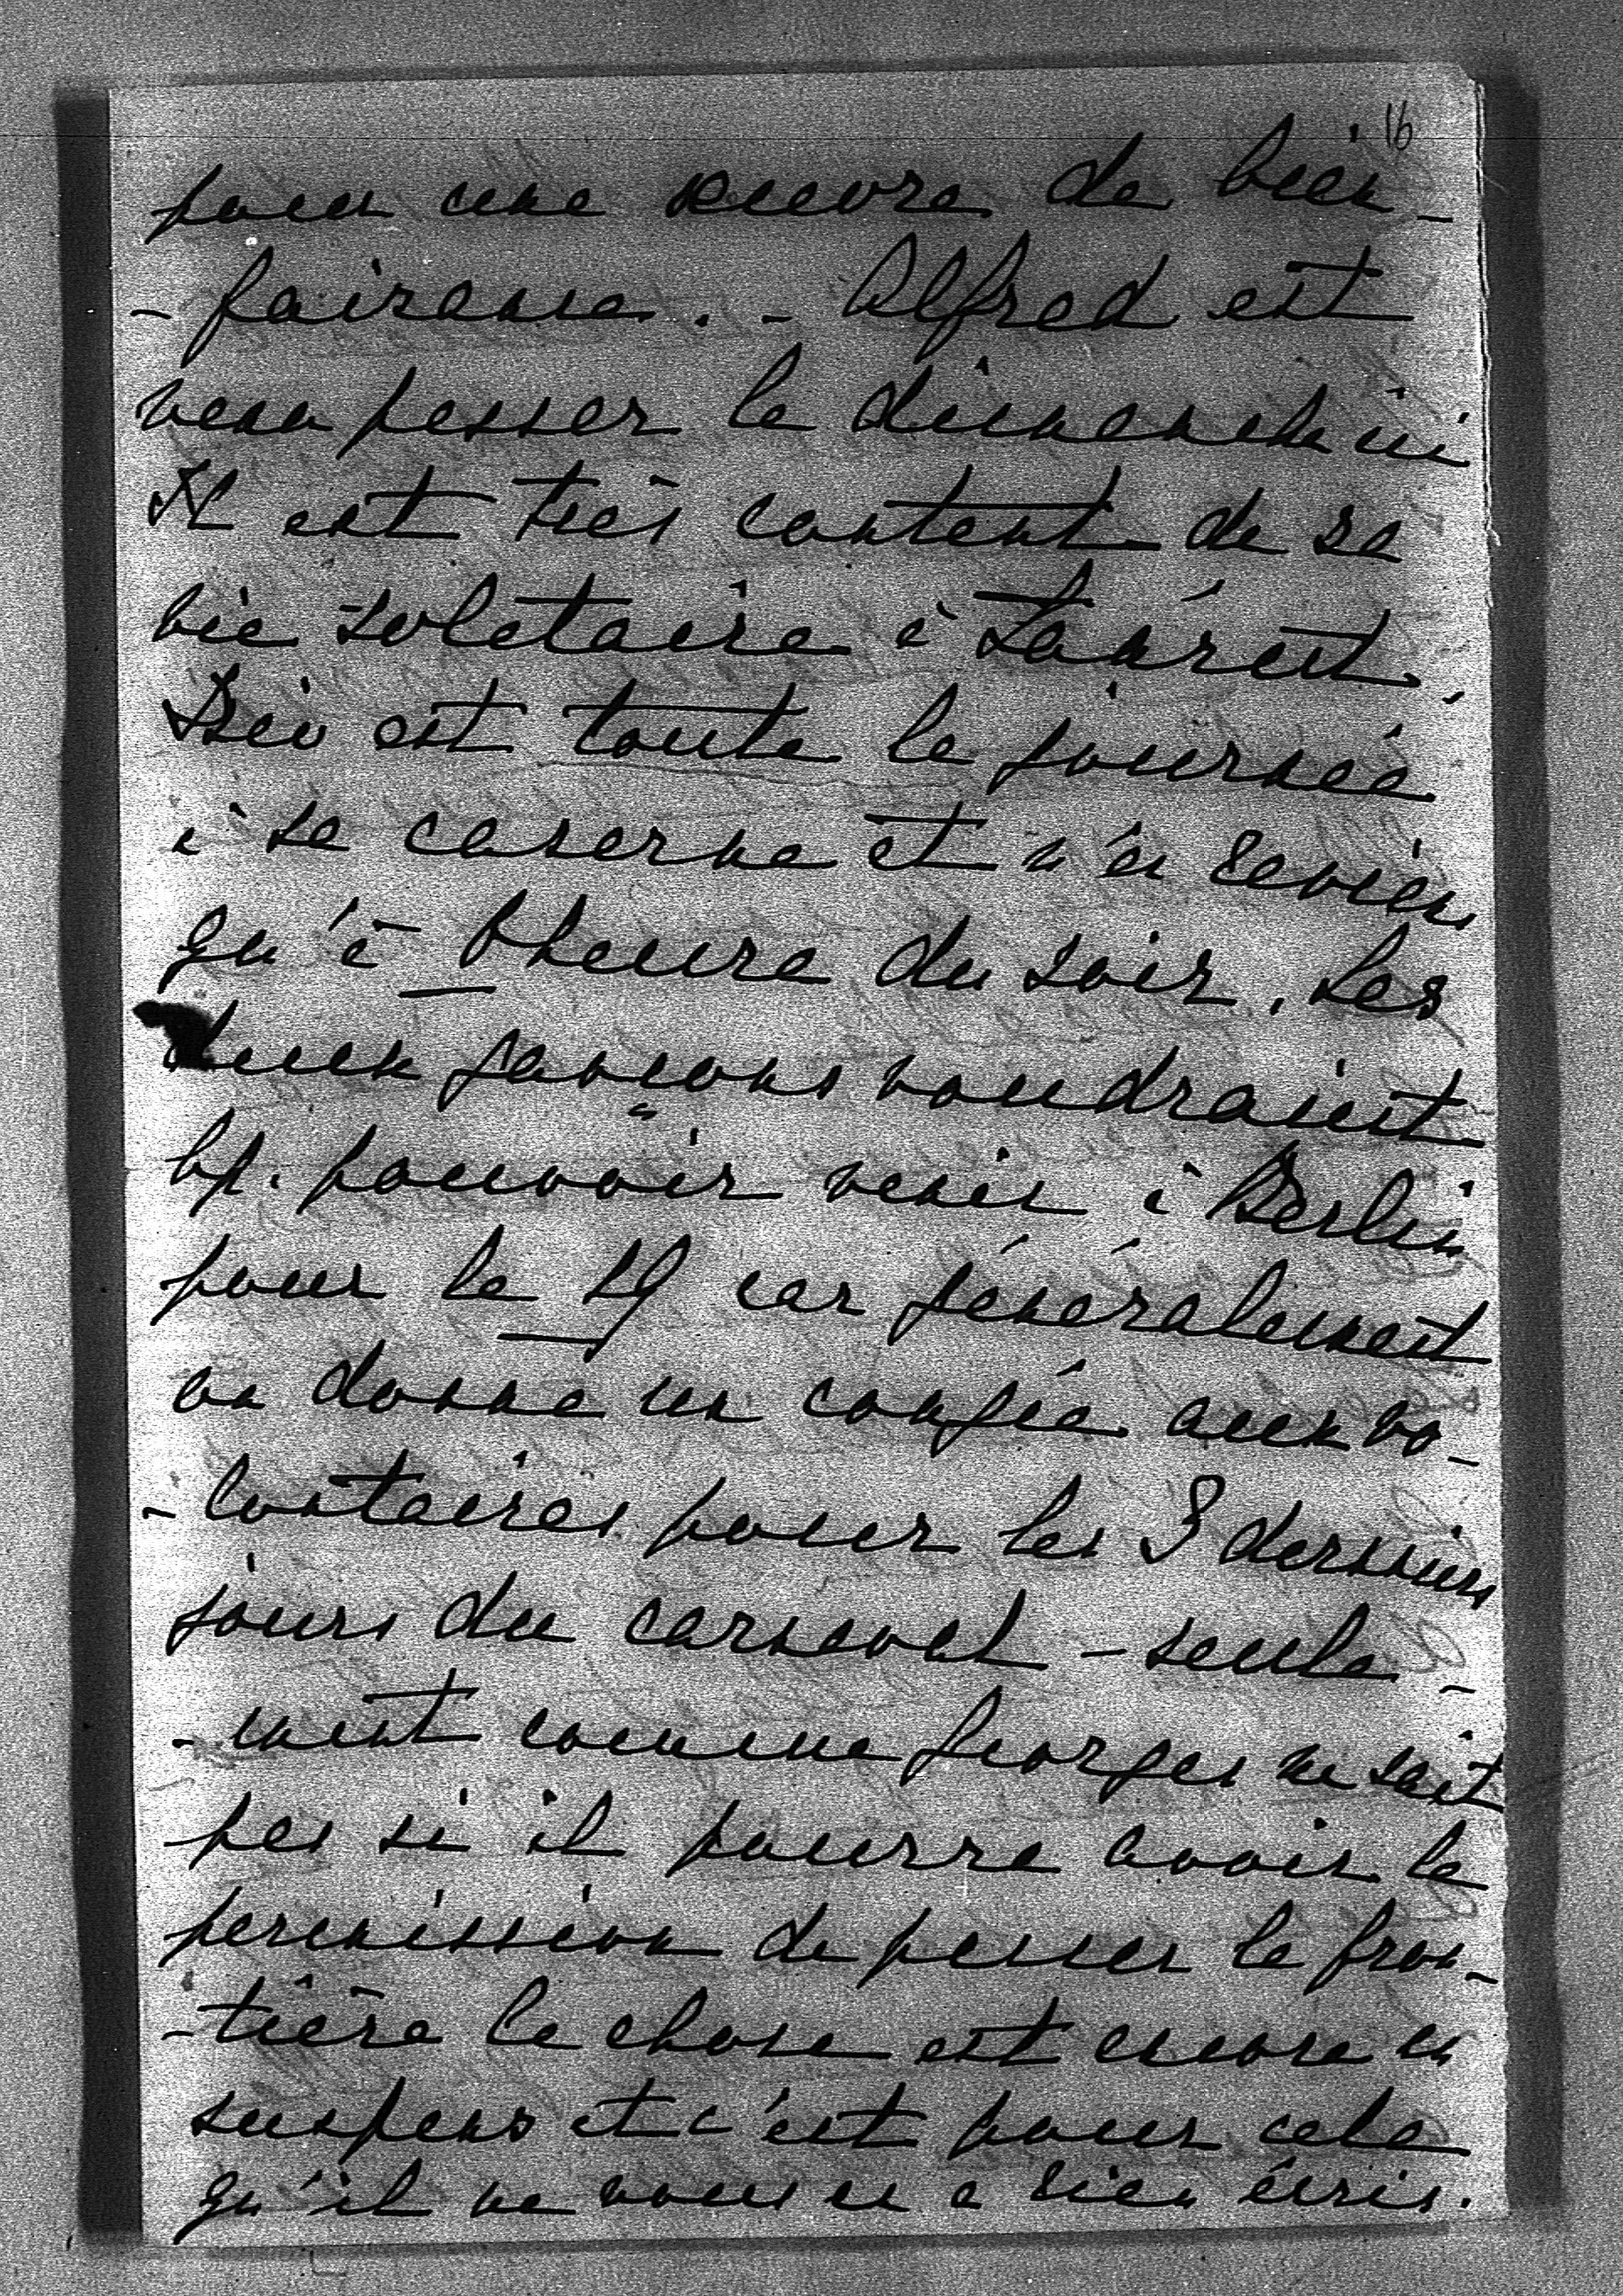 16
pour une oeuvre de bien-
-faisance. - Alfred est
venu passer le dimanche ici
Il est très content de sa
vie solitaire à
est toute la journée
à sa caserne et n'en revien
qu'à heure du soir. Les
deux garçons voudraient
bp. pouvoir venir à Berlin
pour le 19 car généralement
on donne un congée aux vo-
-lontaires pour les 3 derniers
jours du carneval - seule-
-ment comme Georges ne sait
pas si il pourra avoir la
permission de passer la fron-
-tière la chose est encore en
suspens et c'est pour cela
qu'il ne vous en a rien écris.